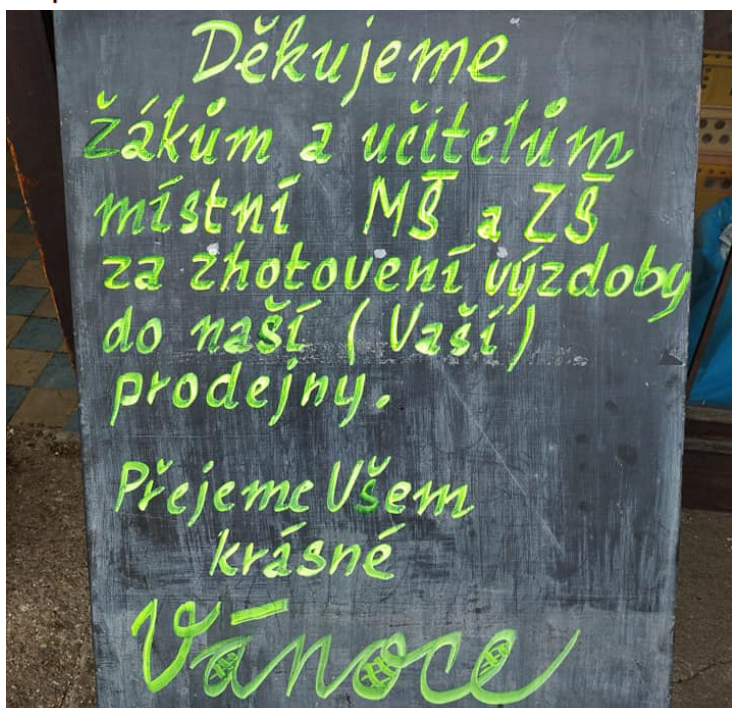 Děkujeme
žákům a učitelům
místní MŠ a ZŠ
za zhotovení výzdoby
do naší (Vaší)
prodejny.
Přejeme Všem
krásné
Vánoce